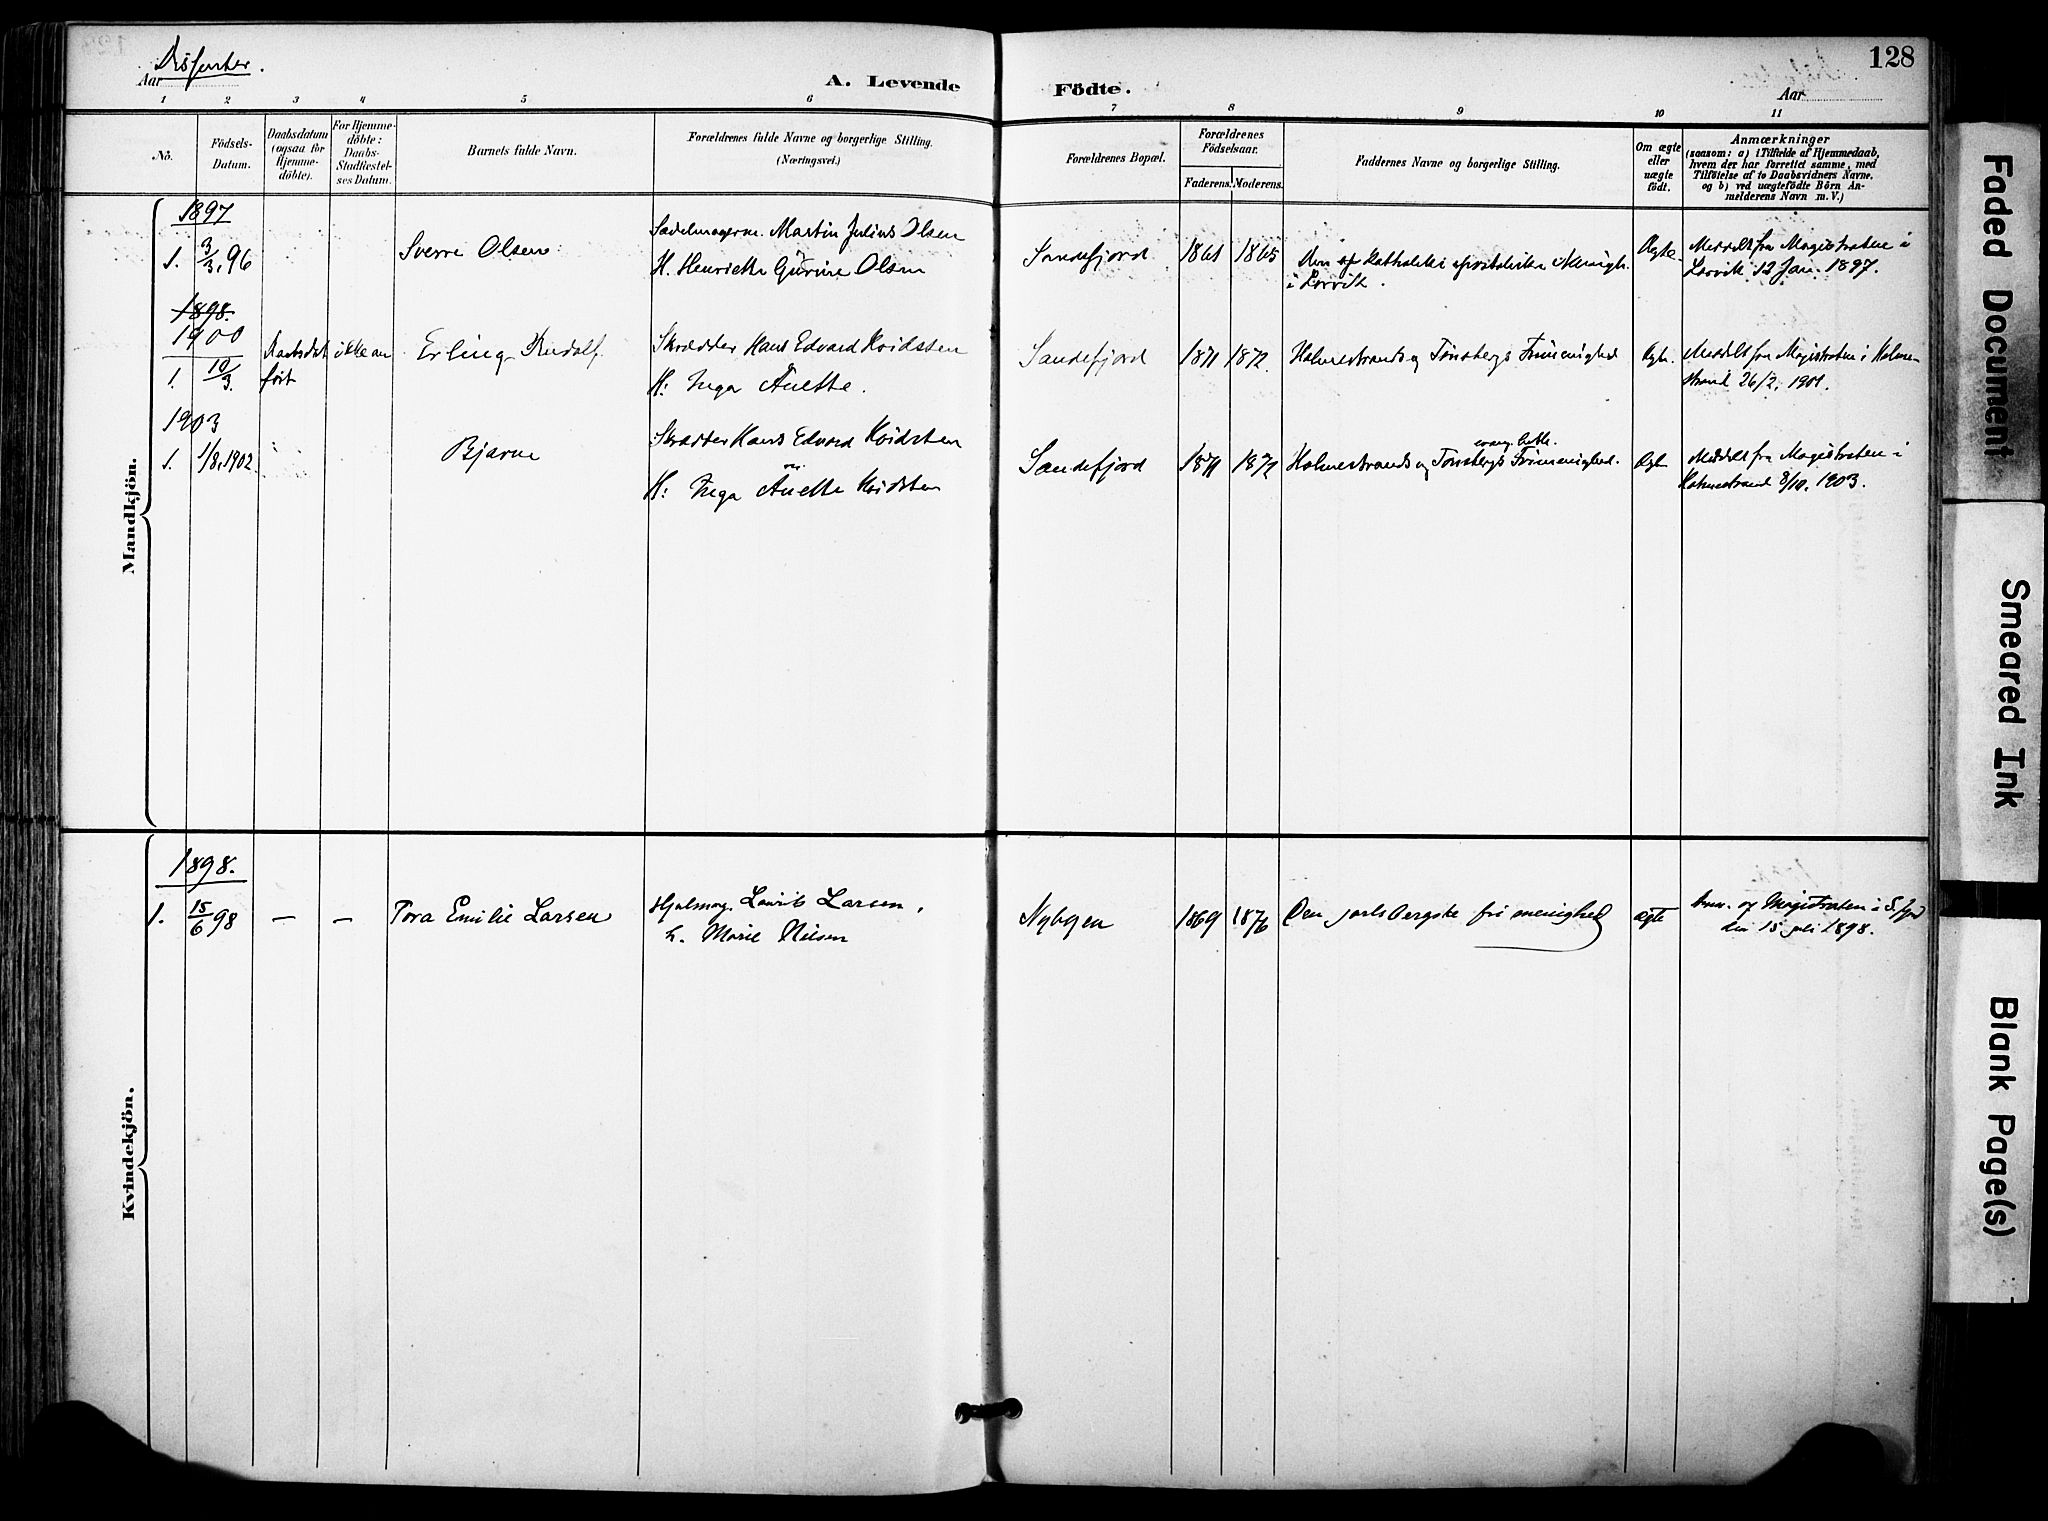 Dissenter.
128
Aar
A. Levende Födte.
Aar
1 2 3 4 5 6 7 8 9 10 11
Nô.
Födsels-
Datum.
Daabsdatum
(ogsaa for
Hjemme-
döbte).
For Hjemme-
döbte:
Daabs-
Stadfæstel-
ses Datum.
Barnets fulde Navn.
Forældrenes fulde Navne og borgerlige Stilling.
(Næringsvei.)
Forældrenes Bopæl.
Forældrenes
Födselsaar.
Faderens. Moderens.
Faddernes Navne og borgerlige Stilling.
Om ægte
eller
uægte
født.
Anmærkninger
(saasom: a) i Tilfælde af Hjemmedaab,
hvem der har forrettet samme, med
Tilföielse af to Daabsvidners Navne.
og b) ved uægtefödte Börn An-
melderens Navn m. V.)
Mandkjön.
1897
1. 3/3, 96
Sverre Olsen
Sadelmagerm. Martin Julius Olsen
H. Henriette Gurine Olsen
Sandefjord 1861 1865
Den katholske apostoliske Menigh.
i Larvik.
Ægte
Meddelt fra Magistraten i
Larvik 12 Jan. 1897.
1898.
1900
1. 10/3.
Daabsdat ikke an
ført
Erling Rudolf
Skrædder Hans Edvard Kvidsten
H: Inga Anette.
Sandefjord 1871 1872.
Holmestrands og Tönsbergs Frimenighed
Ægte.
Meddelt fra Magistraten i Holme-
strand 26/2. 1901.
1903
1. 1/8, 1902.
Bjarne
Skrædder Hans Edvard Kvidsten
H: Inga Anette Kvidsten
Sandefjord 1871 1872
evang. luth.
Holmestrands og Tönsbergs Frimenighed.
Ægte
Meddelt fra Magistraten i
Holmestrand 8/10. 1903.
Kvindekjön.
1898.
1. 15/6 98 — —
Tora Emilie Larsen
Hjulmag. Laurits Larsen,
h. Marie Nilsen
Nybyen 1869 1876
Den jarlsbergske frimenighed
ægte
Anm. af Magistraten i S.fjord
den 15 juli 1898.
Faded Document
Smeared Ink
Blank Page(s)